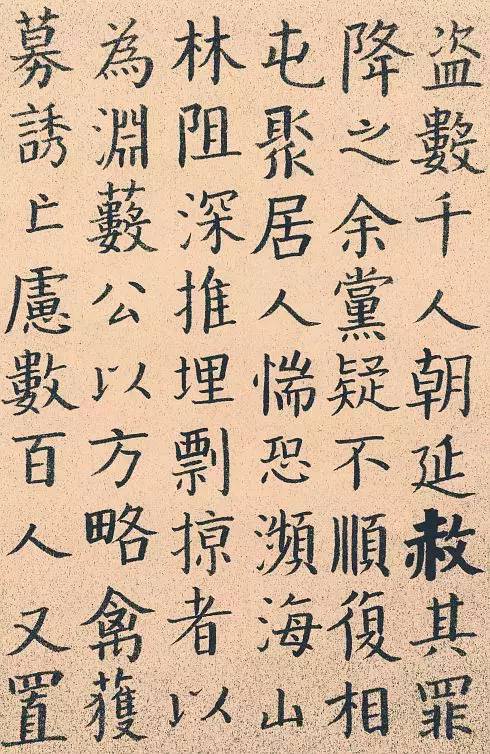 盗數千人朝延赦其罪
降之余黨疑不順復相
屯聚居人惴恐瀕海山
林阻深推埋剽掠者以
為淵藪公以方略禽獲
募誘亡慮數百人又置